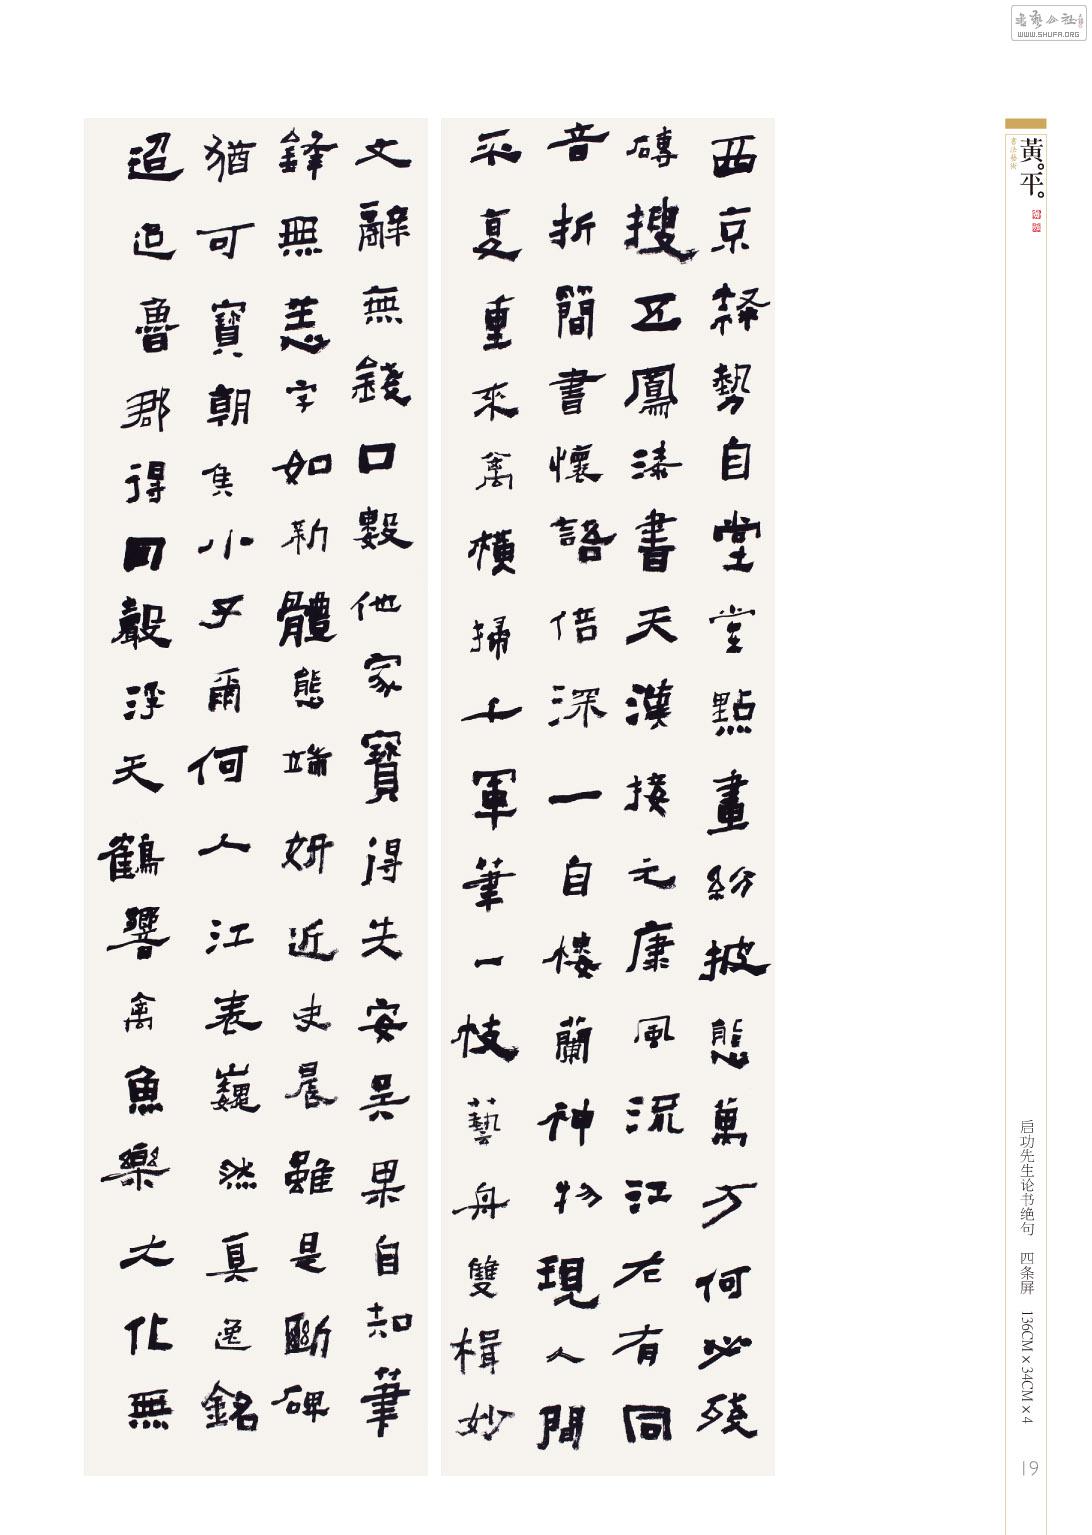 西京隸勢自堂堂點畫紛披態萬方何必殘
磚搜五鳳漆書天漢接元康風流江左有同
音折簡書懷語倍深一自樓蘭神物現人間
平复重來禽橫掃千軍筆一枝藝舟雙楫妙
文辭無錢口數他家寶得失安吳果自知筆
鋒無恙字如新體態端妍近史晨雖是斷碑
猶可寶朝侯小子爾何人江表巍然真逸銘
迢迢魯郡得同聲浮天鶴響禽魚樂大化無
黄平
書法藝術
启功先生论书绝句 四条屏 136CM×34CM×4
19
WWW.SHUFA.ORG